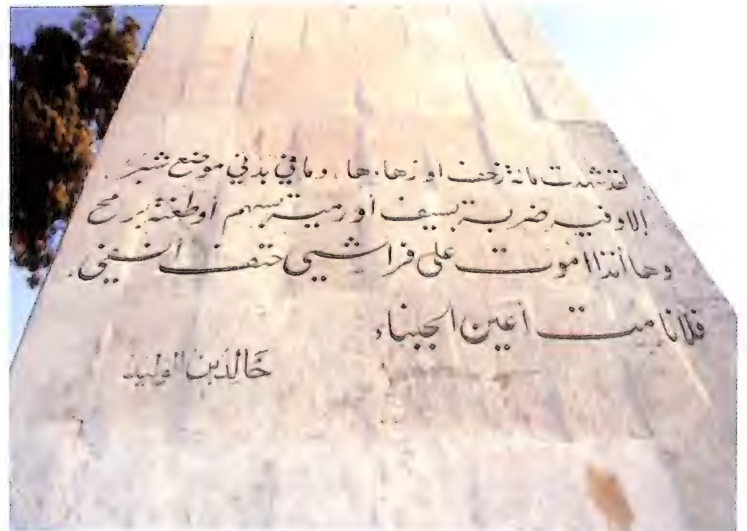 لقد شهدت مائة زحف او زهاءها. وما في بدني موضع شبر
إلا وفيه ضربة بسيف أو رمية بسهم أو طعنة برمح
وها أنذا أموت على فراشي حتف أنفي.
فلا نامت أعين الجبناء
خالد بن الوليد